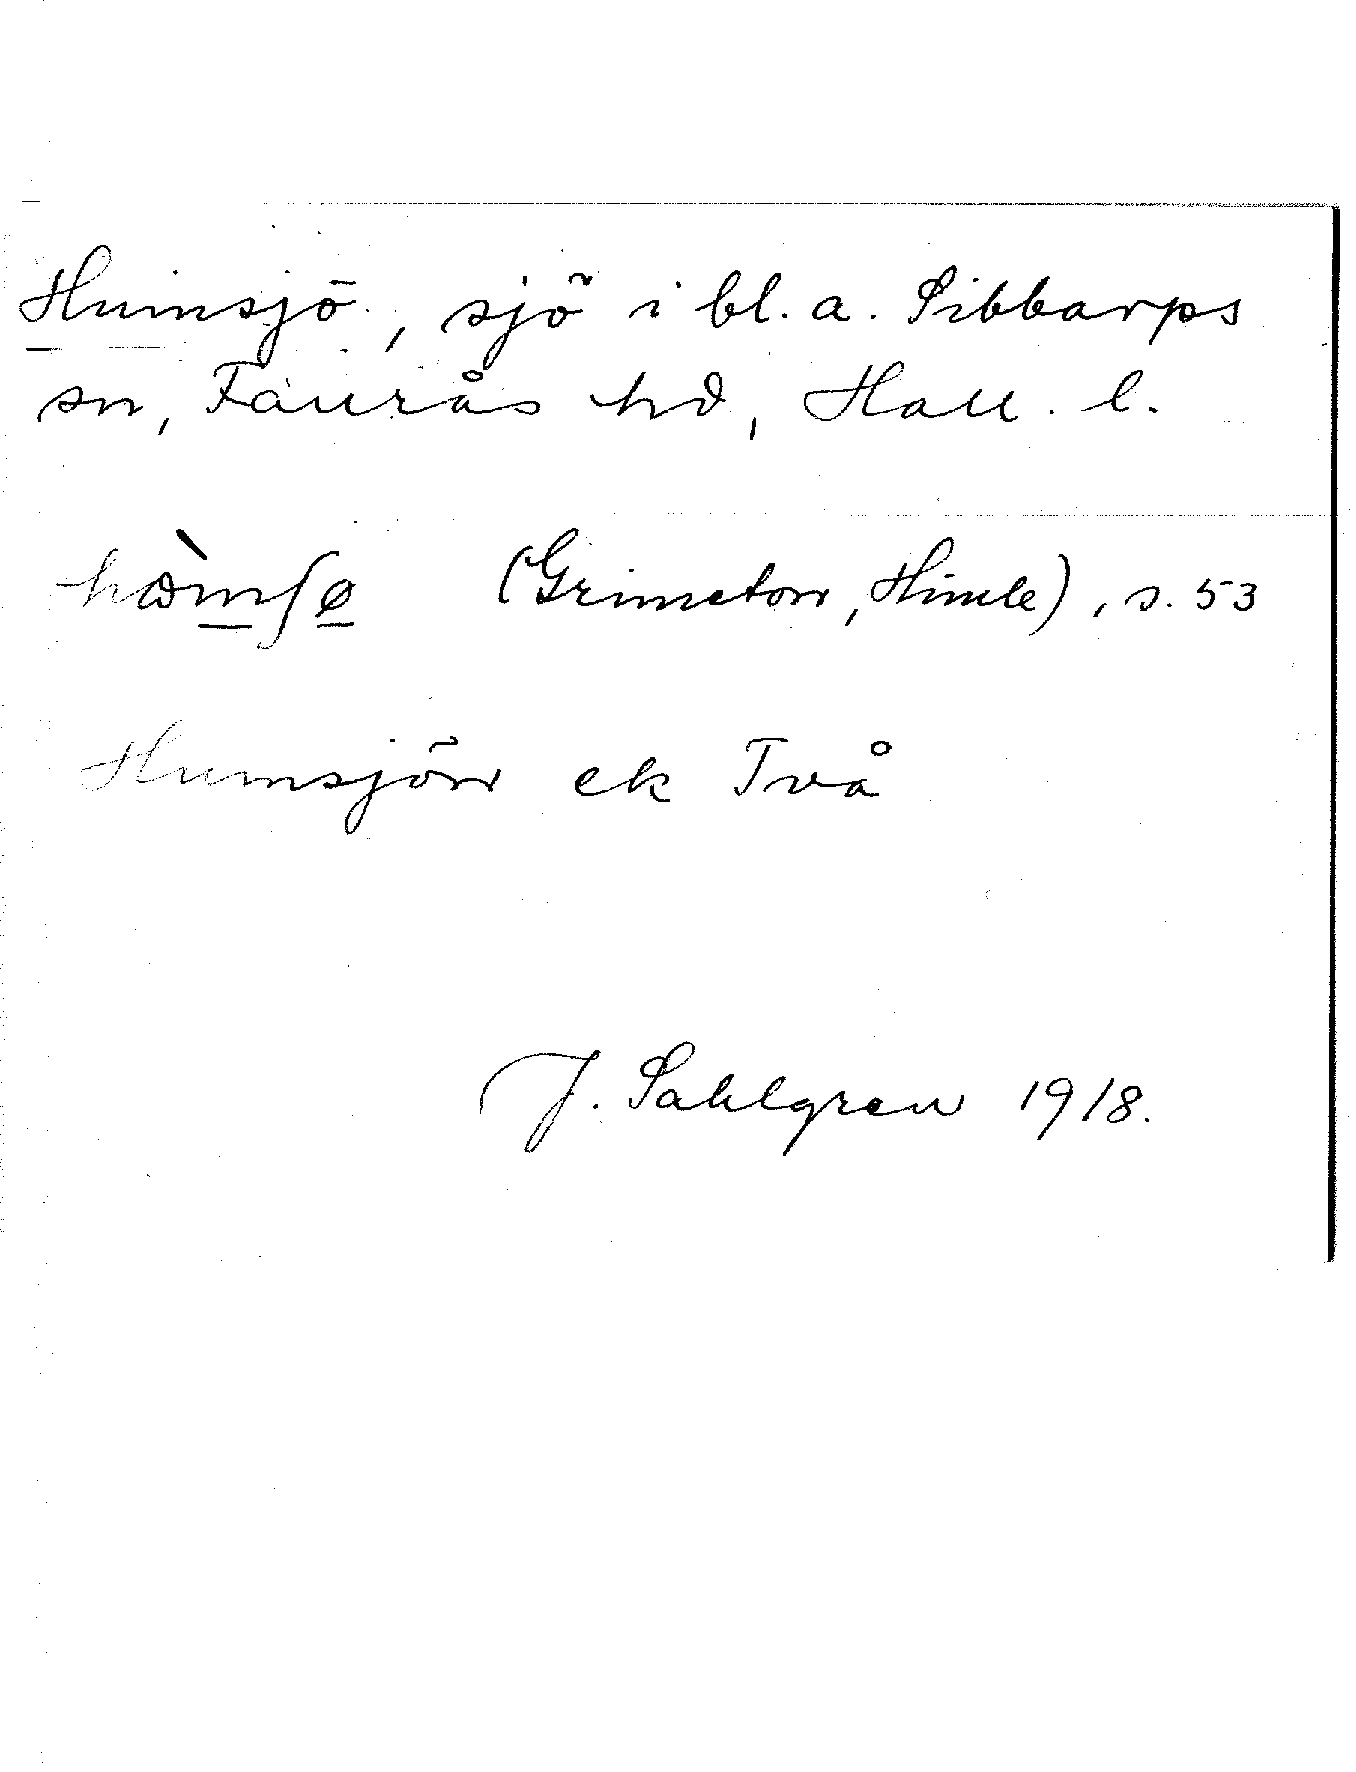 Humsjö, sjö i bl. a. Sibbarps
sn, Faurås hd, Hall. l.
hɷ̀mʃø (Grimeton, Himle), s. 53
Humsjön ek Två
J. Sahlgren 1918.